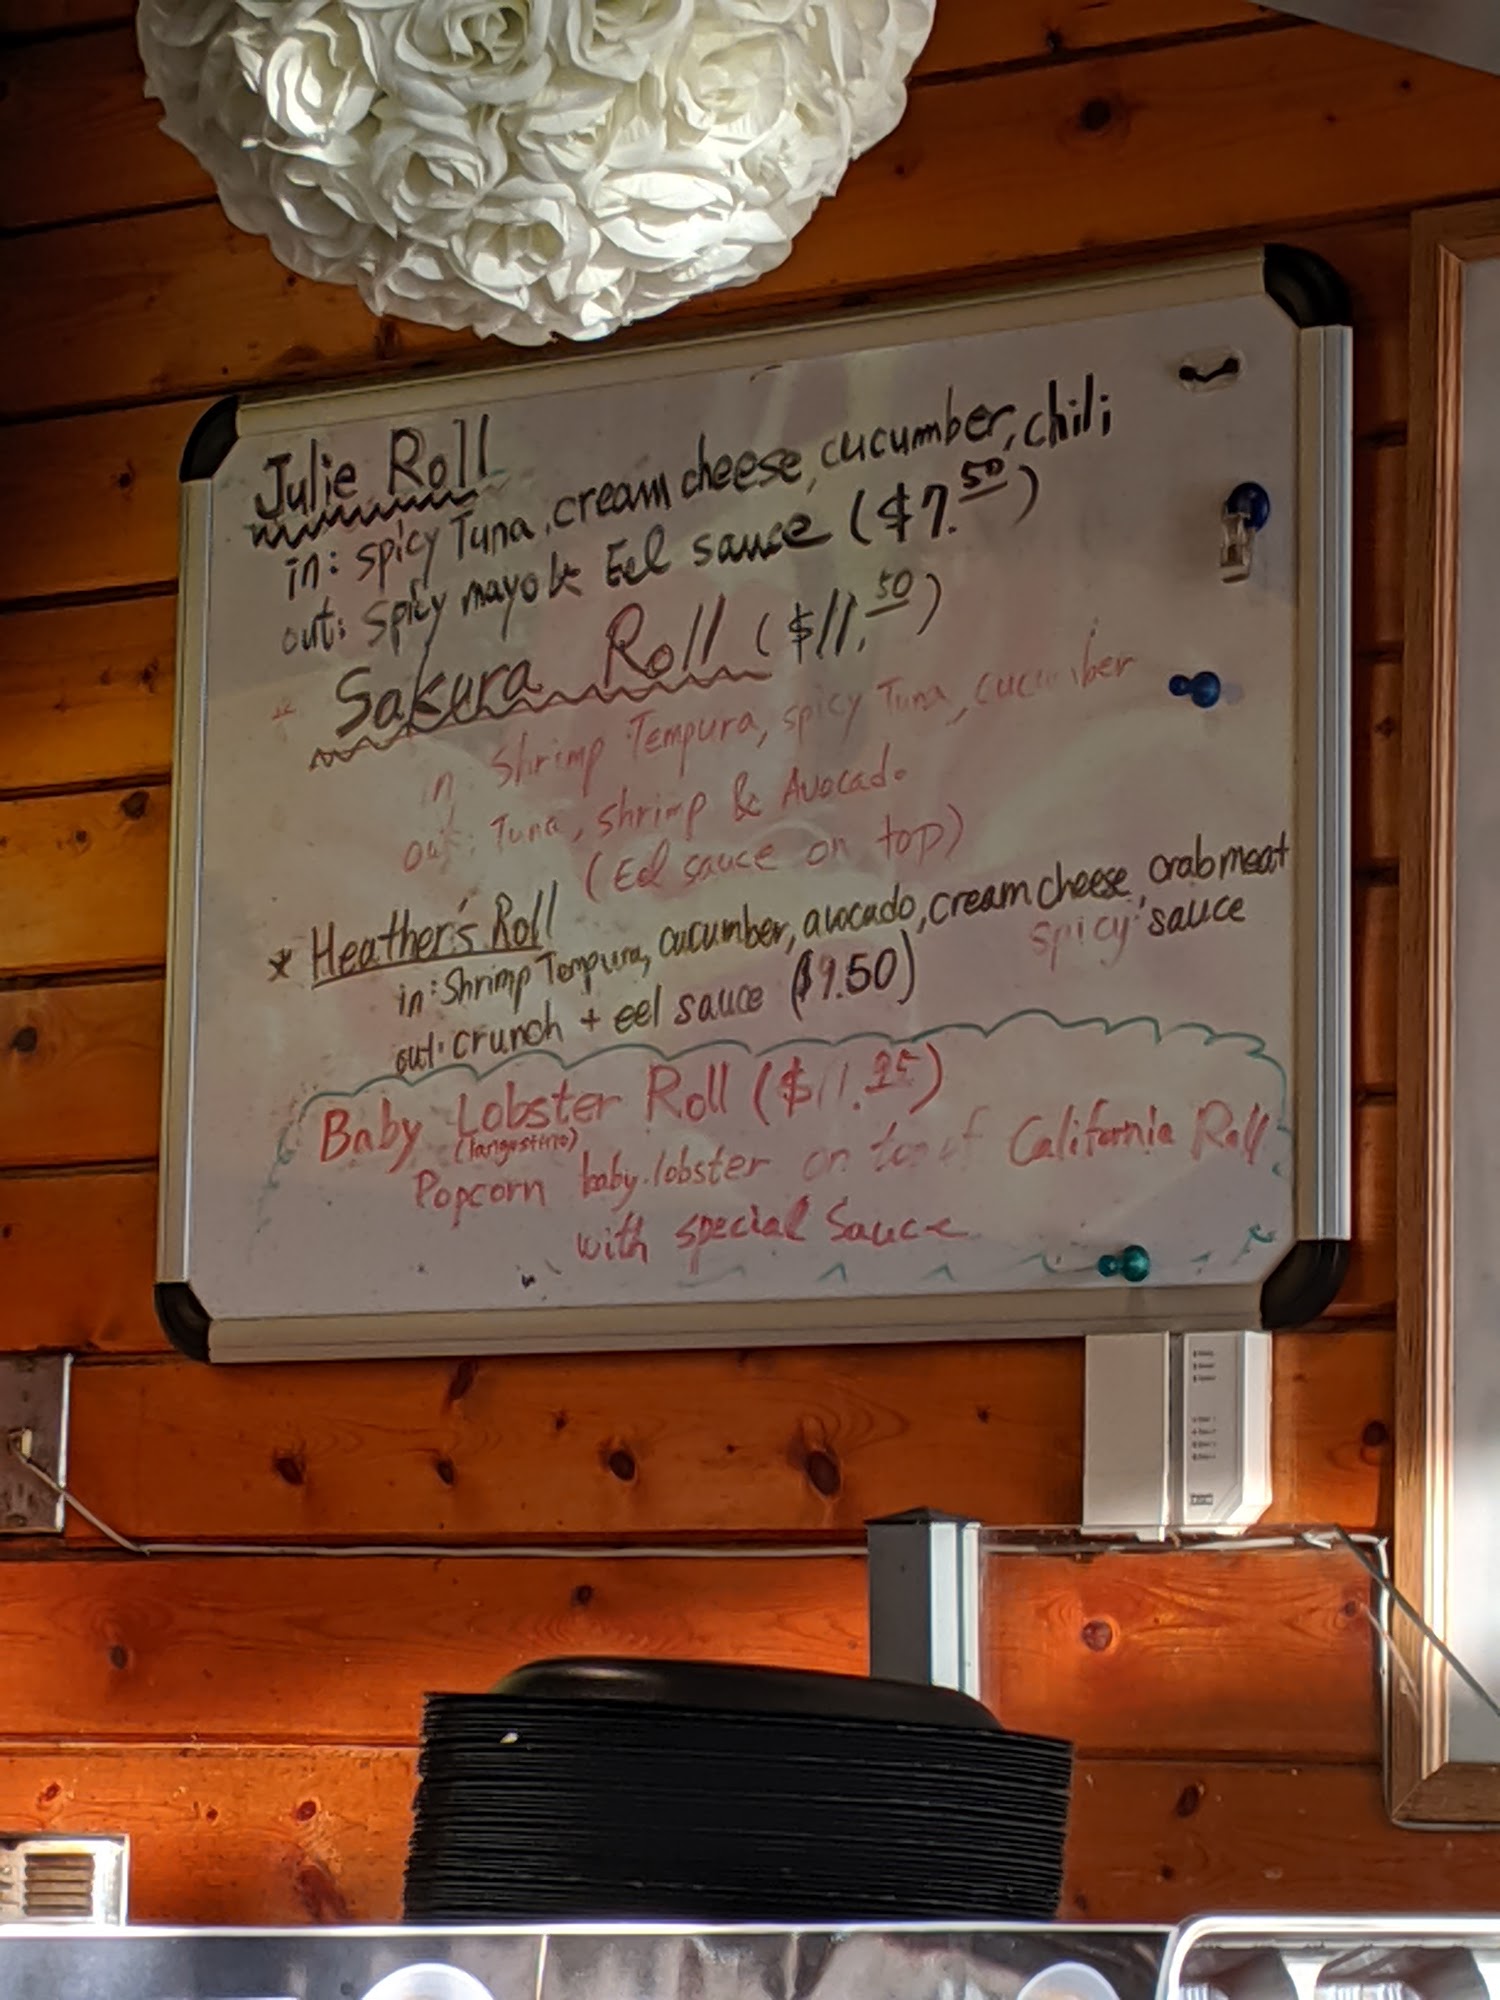 Julie Roll
in: spicy Tuna, cream cheese, cucumber, chili
out: spicy mayo & Eel sauce ($7.50)
Sakura Roll ($11.50)
in: Shrimp Tempura, spicy Tuna, cucumber
out: Tuna, shrimp & Avocado
(Eel sauce on top)
* Heather's Roll
in: Shrimp Tempura, cucumber, avocado, cream cheese, crabmeat
spicy sauce
out: crunch + eel sauce ($9.50)
Baby Lobster Roll ($11.95)
(langostino)
Popcorn baby lobster on top of California Roll
with special Sauce